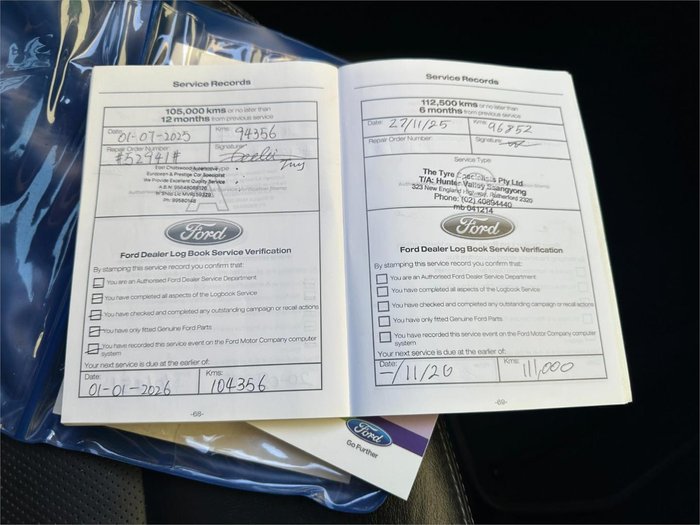 Service Records
105,000 kms or no later than
12 months from previous service
Date: 01-07-2025 Kms: 94356
Repair Order Number: #52941# Signature:
East Chatswood Automotive
European & Prestige Car Specialist
We Provide Excellent Quality Service
Ford
Ford Dealer Log Book Service Verification
By stamping this service record you confirm that:
You are an Authorised Ford Dealer Service Department
You have completed all aspects of the Logbook Service
You have checked and completed any outstanding campaign or recall actions
You have only fitted Genuine Ford Parts
You have recorded this service event on the Ford Motor Company computer
system
Your next service is due at the earlier of:
Date: 01-01-2026 Kms: 104356
-68-
Service Records
112,500 kms or no later than
6 months from previous service
Date: 27/11/25 Kms: 96852
Repair Order Number: Signature:
Service Type
The Tyre Specialists Pty Ltd
T/A: Hunter Valley Ssangyong
323 New England Highway, Rutherford 2320
Phone: (02) 40894440
mb 041214
Ford
Ford Dealer Log Book Service Verification
By stamping this service record you confirm that:
You are an Authorised Ford Dealer Service Department
You have completed all aspects of the Logbook Service
You have checked and completed any outstanding campaign or recall actions
You have only fitted Genuine Ford Parts
You have recorded this service event on the Ford Motor Company computer
system
Your next service is due at the earlier of:
Date: -/11/26 Kms: 111,000
-69-
Ford
Go Further